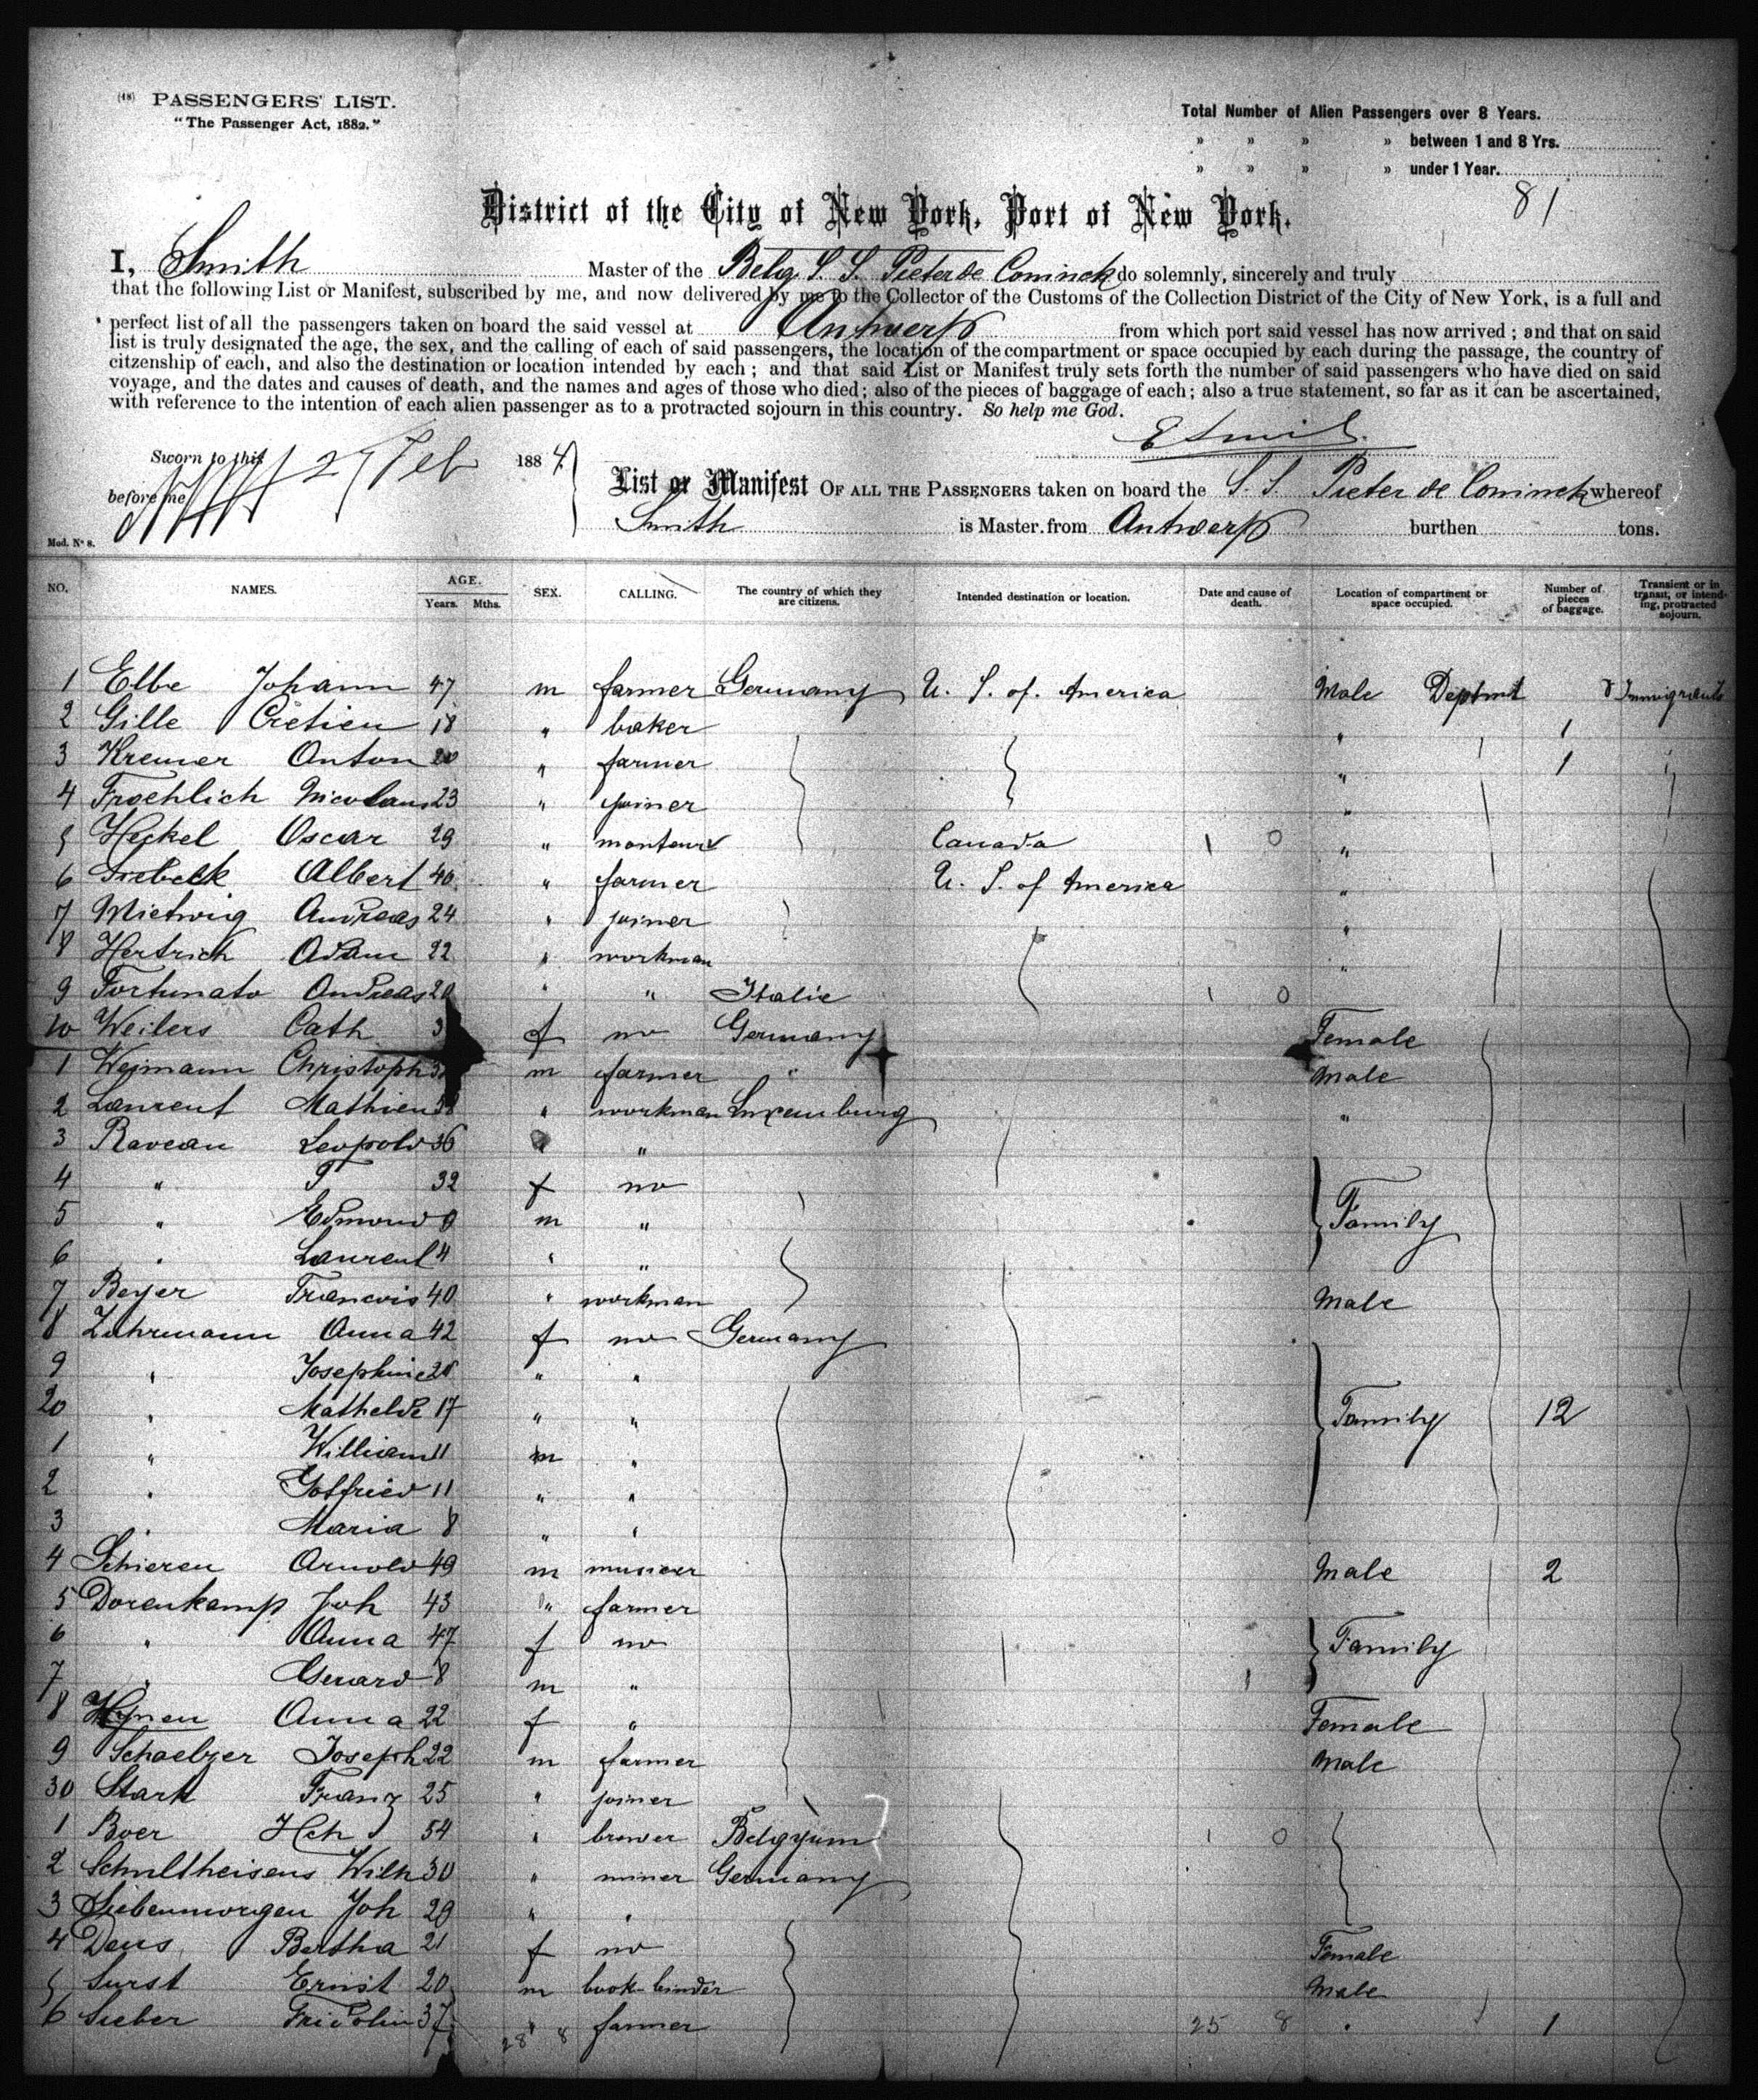 (48) PASSENGERS' LIST.
"The Passenger Act, 1882."
Total Number of Alien Passengers over 8 Years.
" " " " between 1 and 8 Yrs.
" " " " under 1 Year.
81
District of the City of New York, Port of New York.
I, Smith Master of the Belg S. S. Pieter de Coninck do solemnly, sincerely and truly
that the following List or Manifest, subscribed by me, and now delivered by me to the Collector of the Customs of the Collection District of the City of New York, is a full and
perfect list of all the passengers taken on board the said vessel at Antwerp from which port said vessel has now arrived ; and that on said
list is truly designated the age, the sex, and the calling of each of said passengers, the location of the compartment or space occupied by each during the passage, the country of
citzenship of each, and also the destination or location intended by each ; and that said List or Manifest truly sets forth the number of said passengers who have died on said
voyage, and the dates and causes of death, and the names and ages of those who died; also of the pieces of baggage of each; also a true statement, so far as it can be ascertained,
with reference to the intention of each alien passenger as to a protracted sojourn in this country. So help me God.
Sworn to this 27 Feb 1884
before me
List or Manifest OF ALL THE PASSENGERS taken on board the S. S. Pieter de Coninck whereof
Smith is Master. from Antwerp burthen tons.
Mod. No 8.
NO. NAMES. AGE. Years. Mths. SEX. CALLING. The country of which they are citizens. Intended destination or location. Date and cause of death. Location of compartment or space occupied. Number of pieces of baggage. Transient or in transit, or intending, protracted sojourn.
1 Elbe Johann 47 m farmer Germany U. S. of America Male Deptmt Immigrants
2 Gille Cretien 18 " baker " 1
3 Kremer Anton 20 " farmer " 1
4 Froehlich Nicolaus 23 " joiner "
5 Heckel Oscar 29 " monteur Canada 1 0 "
6 Albert 40 " farmer U. S. of America "
7 Mietwig Andreas 24 " joiner "
8 Hertrich Adam 22 " workman "
9 Fortunato Andreas " " Italie 1 0
10 Weilers Cath f no Germany Female
1 Weimann Christoph m farmer " Male
2 Laurent Mathieu 38 " workman Luxemburg "
3 Raveau Leopold 36 " "
4 " F 32 f no
5 " Edmond m " Family
6 " Laurent 4 " "
7 Beyer Francois 40 " workman Male
8 Zuhrmann Anna 42 f no Germany
9 " Josephine " "
20 " Mathelde 17 " " Family 12
1 " William 11 m "
2 " Gotfried 11 " "
3 " Maria 8 " "
4 Schieren Arnold 49 m musicer Male 2
5 Dorenkamp Joh 43 " farmer
6 " Anna 47 f no Family
7 " Gerard 8 m "
8 Hynen Anna 22 f " Female
9 Schaelzer Joseph 22 m farmer Male
30 Stark Franz 25 " joiner
1 Boer Hch 54 " brewer Belgyum 1 0
2 Schultheisens Wilh 30 " miner Germany
3 Siebenmorgen Joh 29 " "
4 Deus Bertha 21 f no Female
5 Surst Ernst 20 m book-binder Male
6 Sieber Fridolin 37 " farmer 25 8 " 1
28 8